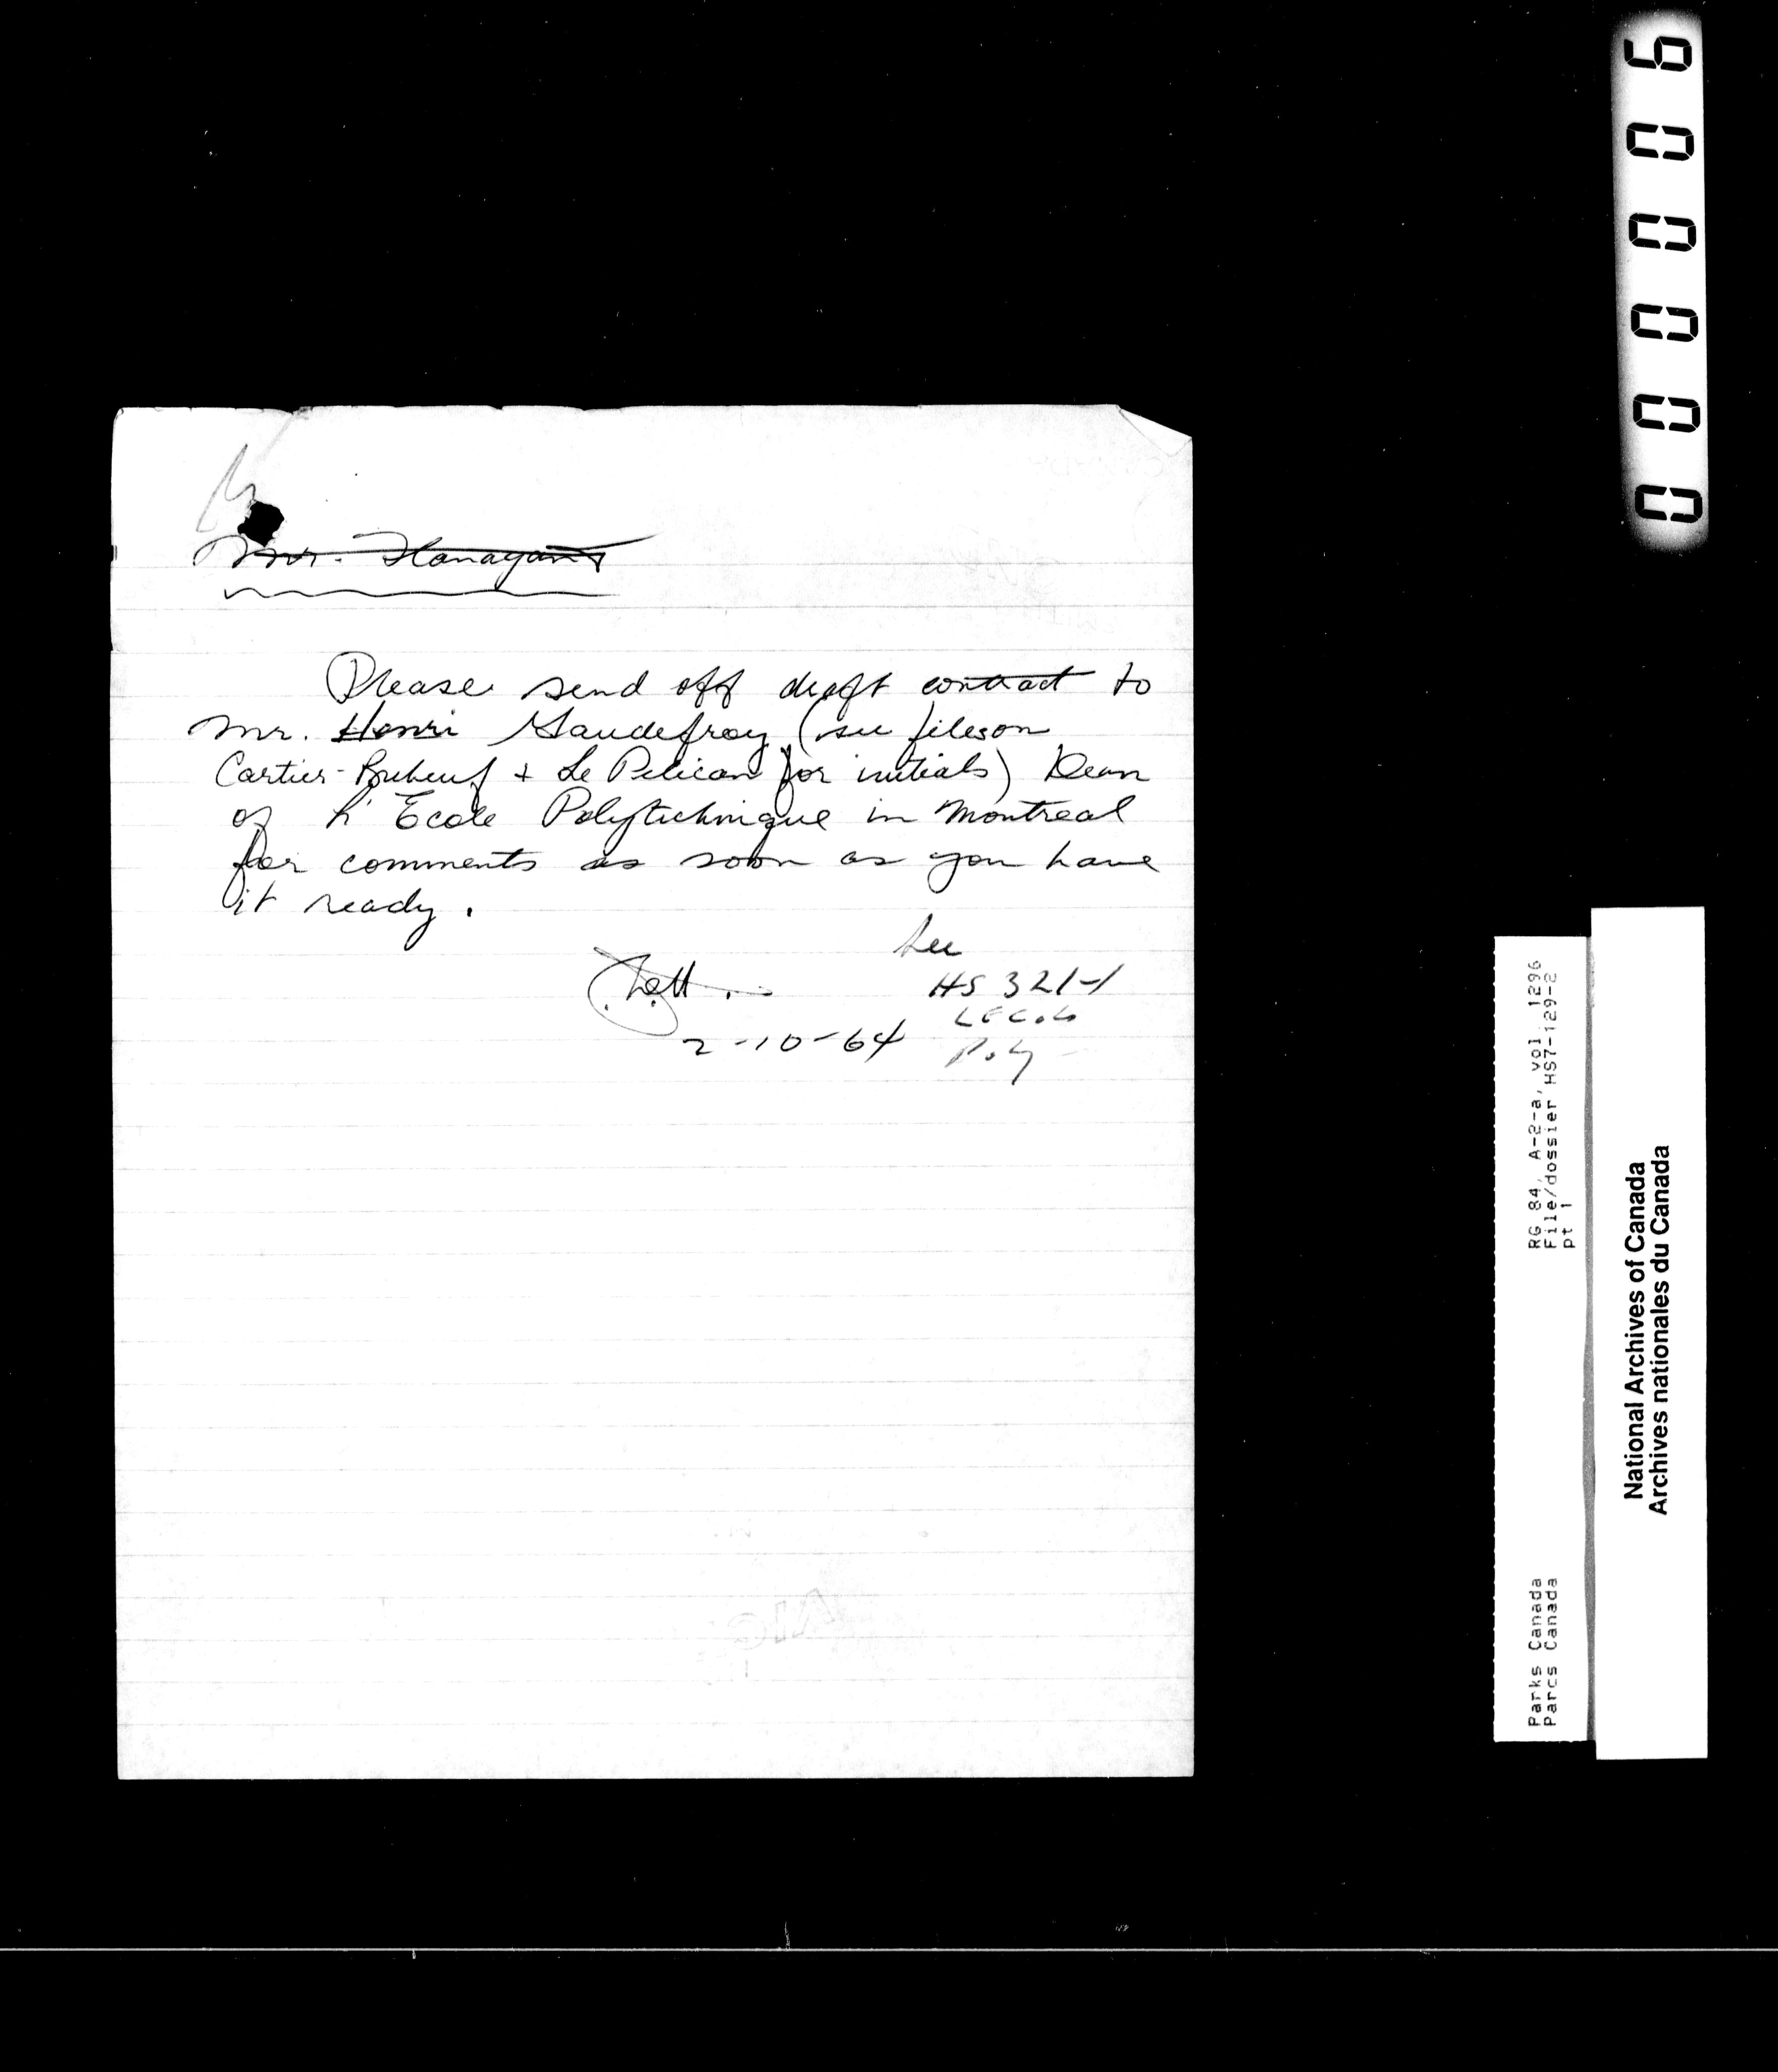 Mr. Flanagan
Please send off draft contract to
Mr. Henri Gaudefroy (see files on
Cartier-Brebeuf + Le Pelican for initials) Dean
of L'Ecole Polytechnique in Montreal
for comments as soon as you have
it ready.
See
HS 321-1
2-10-64
Poly
000006
RG 84, A-2-a, vol. 1296
File/dossier HS7-129-2
pt 1
Parks Canada
Parcs Canada
National Archives of Canada
Archives nationales du Canada